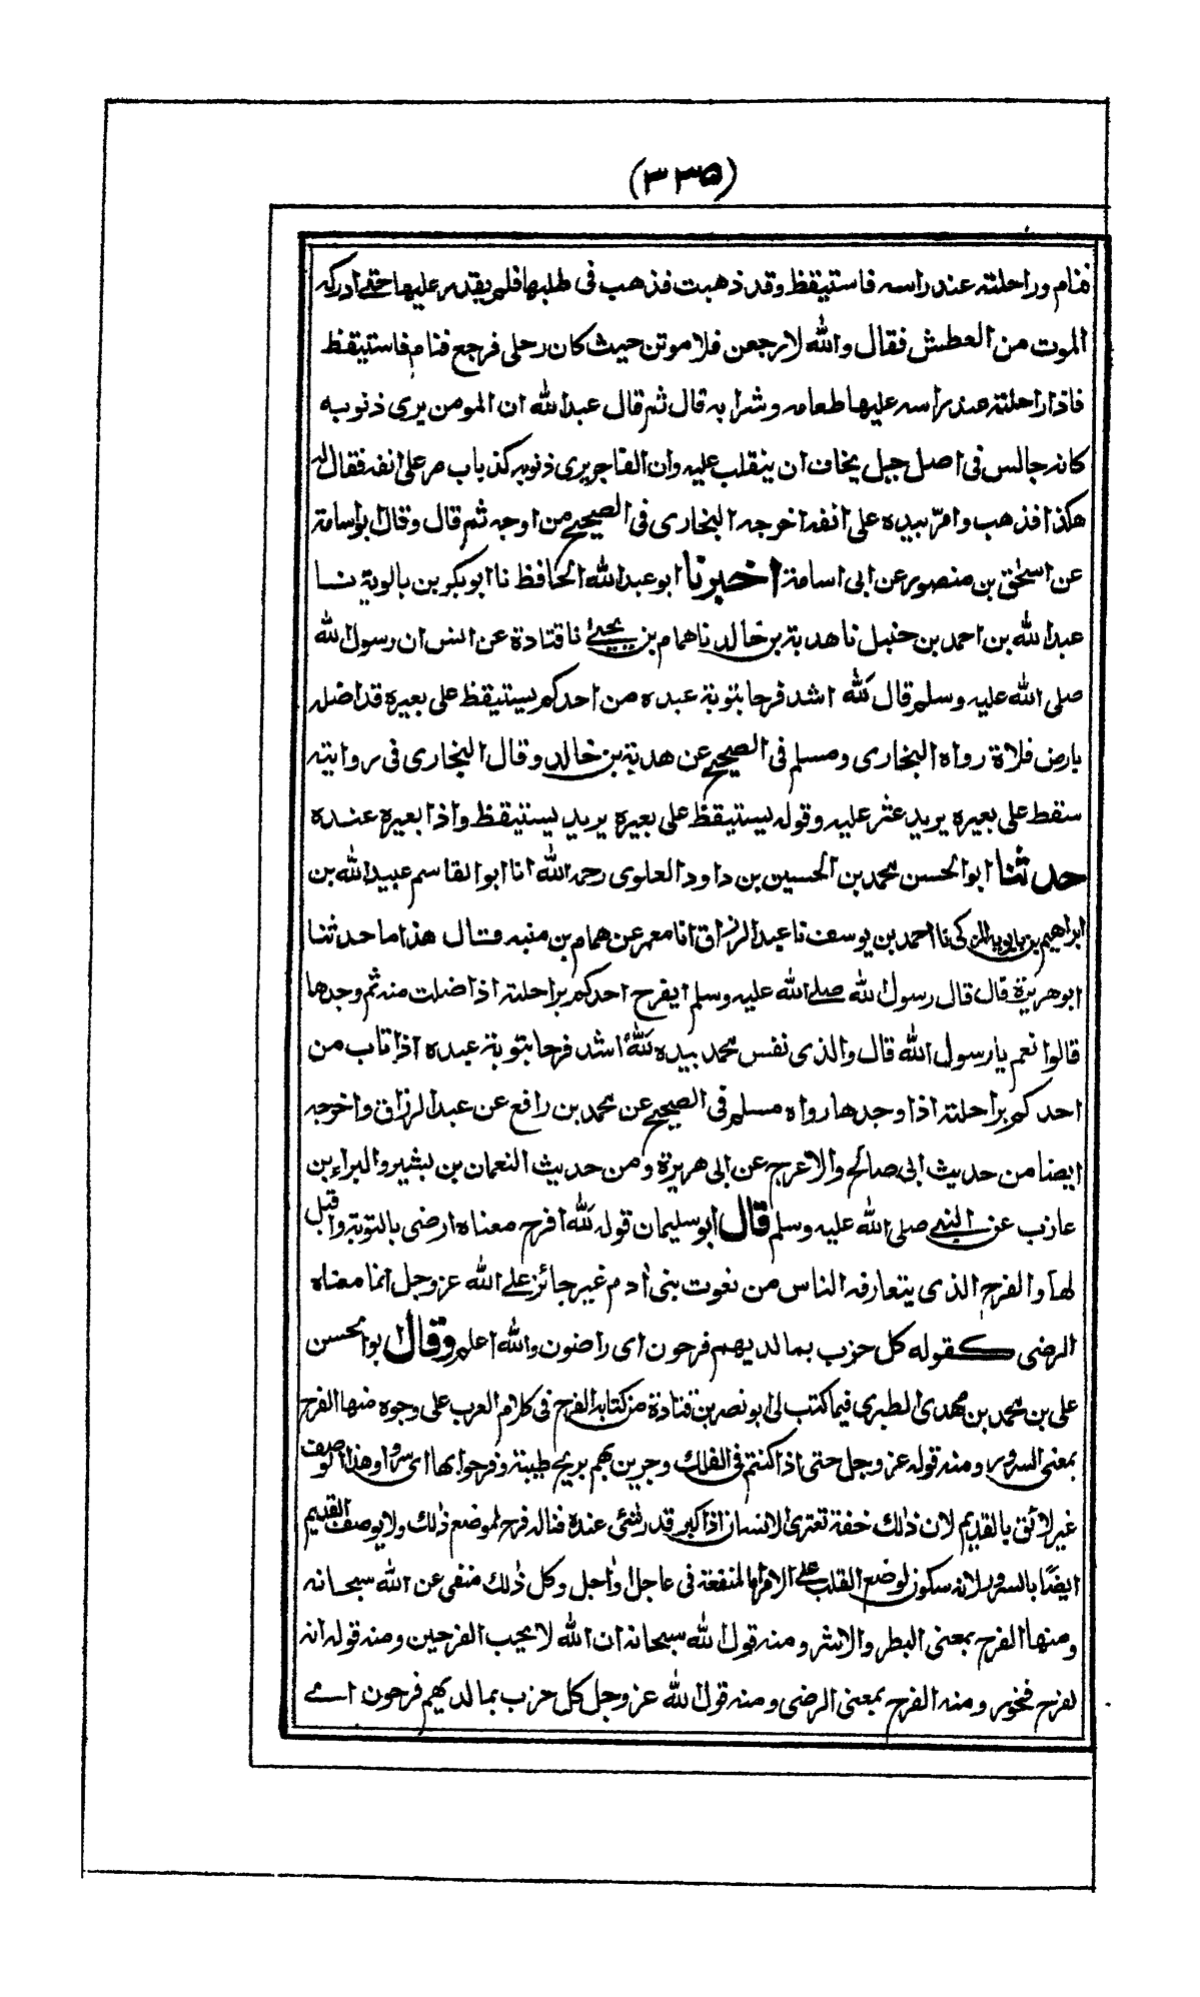 (٣٣٥)
فنام وراحلته عند راسه فاستيقظ وقد ذهبت فذهب فى طلبها فلم يقدر عليها حتى ادركه
الموت من العطش فقال والله لارجعن فلاموتن حيث كان رحلى فرجع فنام فاستيقظ
فاذا راحلته عند راسه عليها طعامه وشرابه قال ثم قال عبد الله ان المومن يرى ذنوبه
كانه جالس فى اصل جبل يخاف ان ينقلب عليه وان الفاجر يرى ذنوبه كذباب مر على انفه فقال له
هكذا فذهب وامرّ بيده على انفه اخرجه البخارى فى الصحيح من اوجه ثم قال وقال ابو اسامة
عن اسحٰق بن منصور عن ابى اسامة اخبرنا ابو عبد الله الحافظ نا ابو بكر بن بالوية نا
عبد الله بن احمد بن حنبل نا هدبة بن خالد نا همام بن يحيى نا قتادة عن انس ان رسول الله
صلى الله عليه وسلم قال لله اشد فرحا بتوبة عبده من احدكم يستيقظ على بعيره قد اضله
بارض فلاة رواه البخارى ومسلم فى الصحيح عن هدبة بن خالد وقال البخارى فى روايته
سقط على بعيره يريد عثر عليه وقوله يستيقظ على بعيره يريد يستيقظ واذا بعيره عنده
حدثنا ابو الحسن محمد بن الحسين بن داود العلوى رحمه الله انا ابو القاسم عبيد الله بن
ابراهيم بن بالويه المزكى نا احمد بن يوسف نا عبد الرزاق انا معمر عن همام بن منبه قال هذا ما حدثنا
ابو هريرة قال قال رسول الله صلى الله عليه وسلم ايفرح احدكم براحلته اذا ضلت منه ثم وجدها
قالوا نعم يا رسول الله قال والذى نفس محمد بيده لله اشد فرحا بتوبة عبده اذا تاب من
احدكم براحلته اذا وجدها رواه مسلم فى الصحيح عن محمد بن رافع عن عبد الرزاق واخرجه
ايضا من حديث ابى صالح والاعرج عن ابى هريرة ومن حديث النعمان بن بشير والبراء بن
عازب عن النبى صلى الله عليه وسلم قال ابو سليمان قوله لله افرح معناه ارضى بالتوبة واقبل
لها والفرح الذى يتعارفه الناس من نعوت بنى اٰدم غير جائز على الله عز وجل انما معناه
الرضى كقوله كل حزب بما لديهم فرحون اى راضون والله اعلم وقال ابو الحسن
على بن محمد بن مهدى الطبرى فيما كتب لى ابو نصر بن قتادة من كتابه الفرح فى كلام العرب على وجوه منها الفرح
بمعنى السرور ومنه قوله عز وجل حتى اذا كنتم فى الفلك وجرين بهم بريح طيبة وفرحوا بها اى سروا وهذا الوصف
غير لائق بالقديم لان ذلك خفة تعترى الانسان اذا كبر قدر شئى عنده فناله فرح لموضع ذٰلك ولا يوصف القديم
ايضًا بالسرور لانه سكون لوضع القلب على الامر اما لمنفعة فى عاجل او اٰجل وكل ذٰلك منفى عن الله سبحانه
ومنها الفرح بمعنى البطر والاشر ومنه قول الله سبحانه ان الله لا يحب الفرحين ومنه قوله انه
لفرح فخور ومنه الفرح بمعنى الرضى ومنه قول الله عز وجل كل حزب بما لديهم فرحون اے